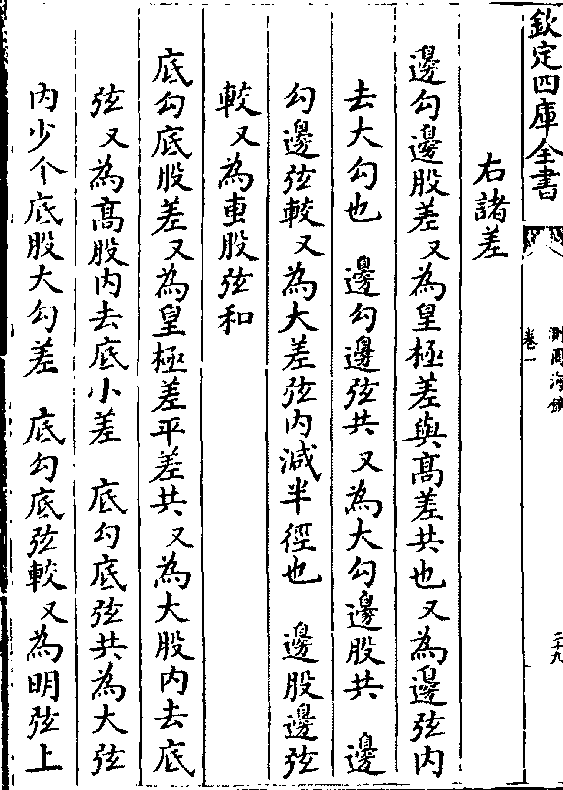 欽定四庫全書
測圓海鏡
卷一
二十九
右諸差
邊勾邊股差又為皇極差與髙差共也又為邊弦内
去大勾也　邊勾邊弦共又為大勾邊股共　邊
勾邊弦較又為大差弦内減半徑也　邊股邊弦
較又為叀股弦和
底勾底股差又為皇極差平差共又為大股内去底
弦又為髙股内去底小差　底勾底弦共為大弦
内少个底股大勾差　底勾底弦較又為明弦上